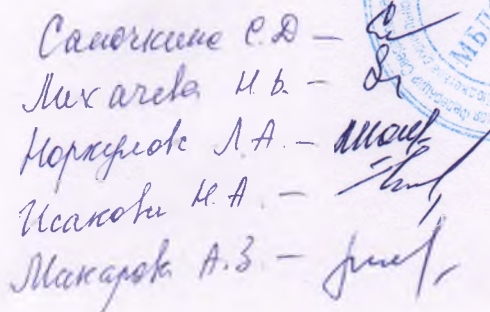 Самочкина С.Д –
Лихачева Н.В. –
Норкулова Л.А. –
Исакова Н.А. –
Макарова А.З –
МБД